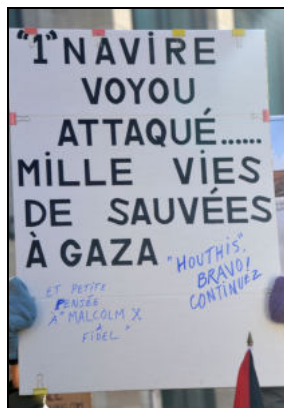 "1" NAVIRE
VOYOU
ATTAQUÉ......
MILLE VIES
DE SAUVÉES
À GAZA
"HOUTHIS",
BRAVO!
CONTINUEZ
ET PETITE
PENSÉE
À "MALCOLM X
À
FIDEL"